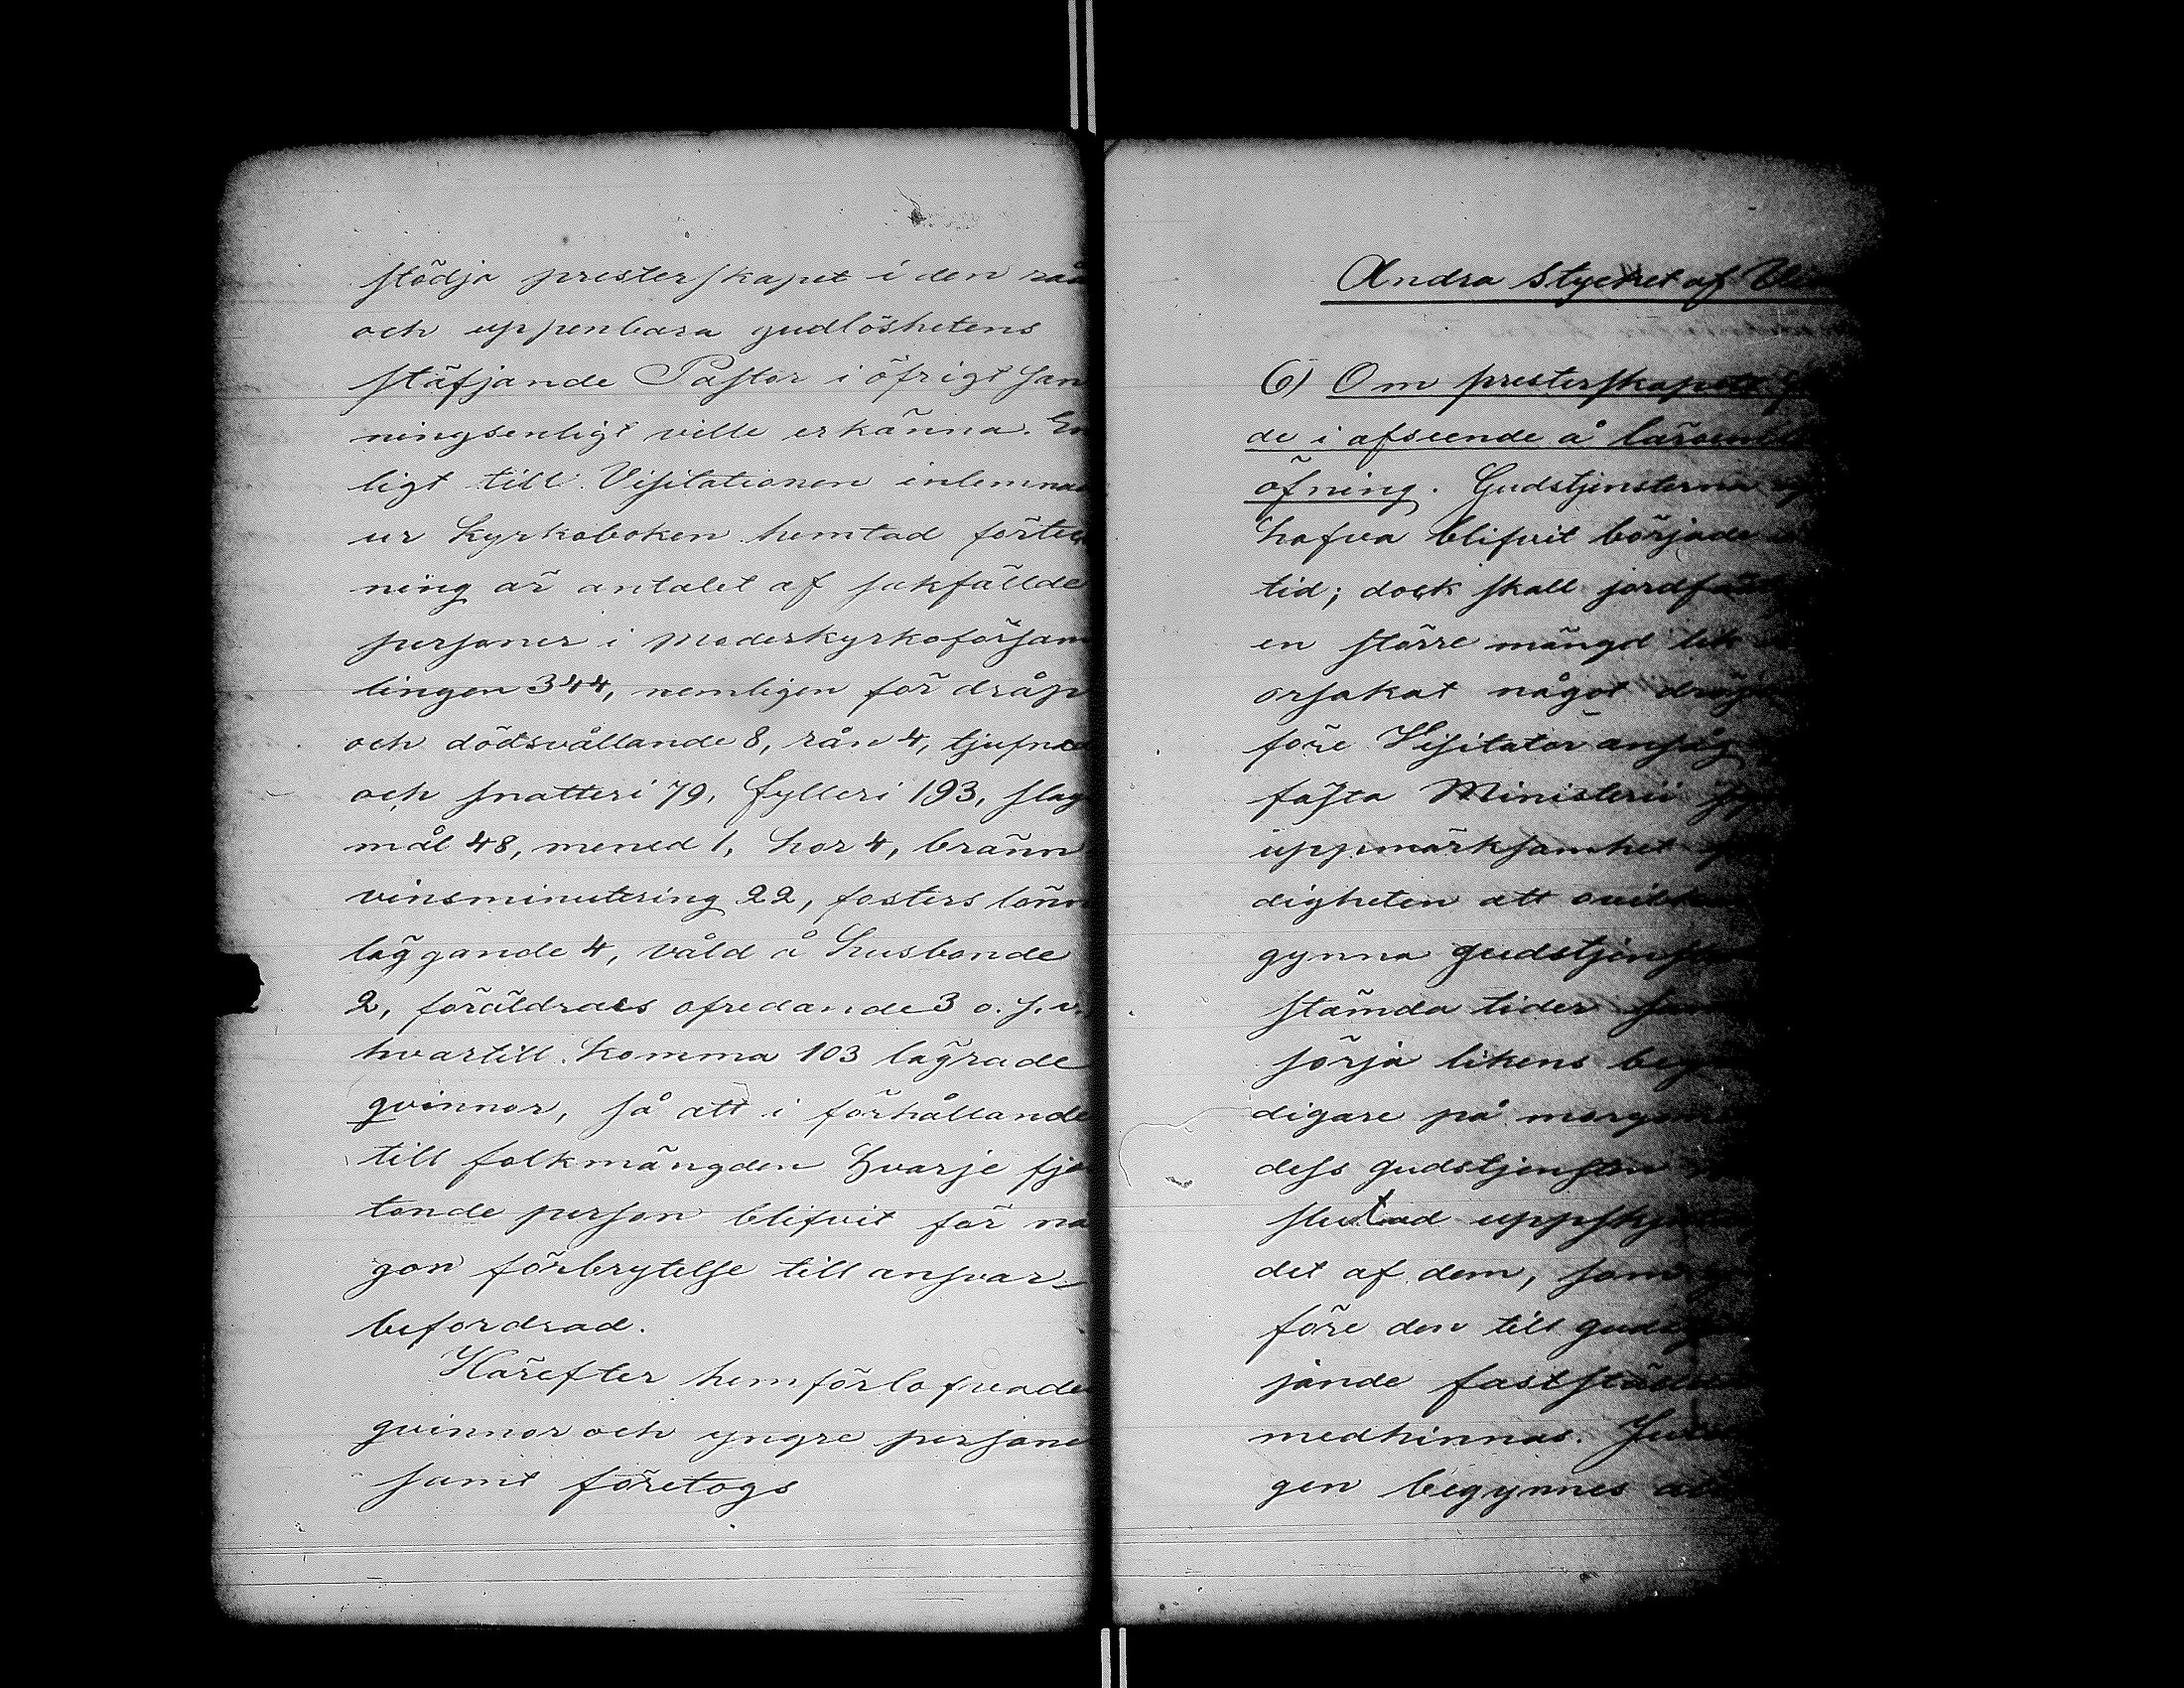 stödja presterskapet i den rå
och uppenbara gudlöshetens
stäfjande Pastor i öfrigt san
ningsenligt ville erkänna. En
ligt till Visitationen inlemna
ur kyrkoboken hemtad förteck
ning är antalet af sakfällde
personer i Moderkyrkoförsam
lingen 344, nemligen för dråp
och dödsvållande 8, rån 4, tjufnad
och snatteri 79, fylleri 193, slag
mål 48, mened 1, hor 4, bränn
vinsminutering 22, fosters lönn
läggande 4, våld å husbonde
2, föräldrars ofredande 3 o. s. v.
hvartill komma 103 lägrade
qvinnor, så att i förhållande
till folkmängden hvarje fjor
tonde person blifvit för nå
gon förbrytelse till ansvar
befordrad.
Härefter hemförlofvade
qvinnor och yngre persone
samt företogs
Andra Stycket af
6) Om presterskapets
de i afseende å läroem
öfning. Gudstjensterna
hafva blifvit började
tid; dock skall jordfäst
en större mängd lik
orsakat något dröj
före Visitator ansåg
fästa Ministerii
uppmärksamhet
digheten att
gynna gudstjenst
stämda tider
sörja likens
digare på morgon
dess gudstjensten
slutad uppskj
det af dem, som
före den till guds
jande fastställ
medhinnas.
gen begynnes